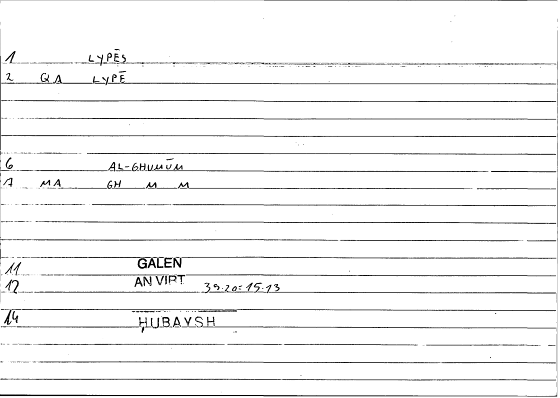 1 LYPĒS
2 QA LYPĒ
6 AL-GHUMŪM
7 MA GH M M
11 GALEN
12 AN VIRT 39.20=15.13
14 ḤUBAYSH